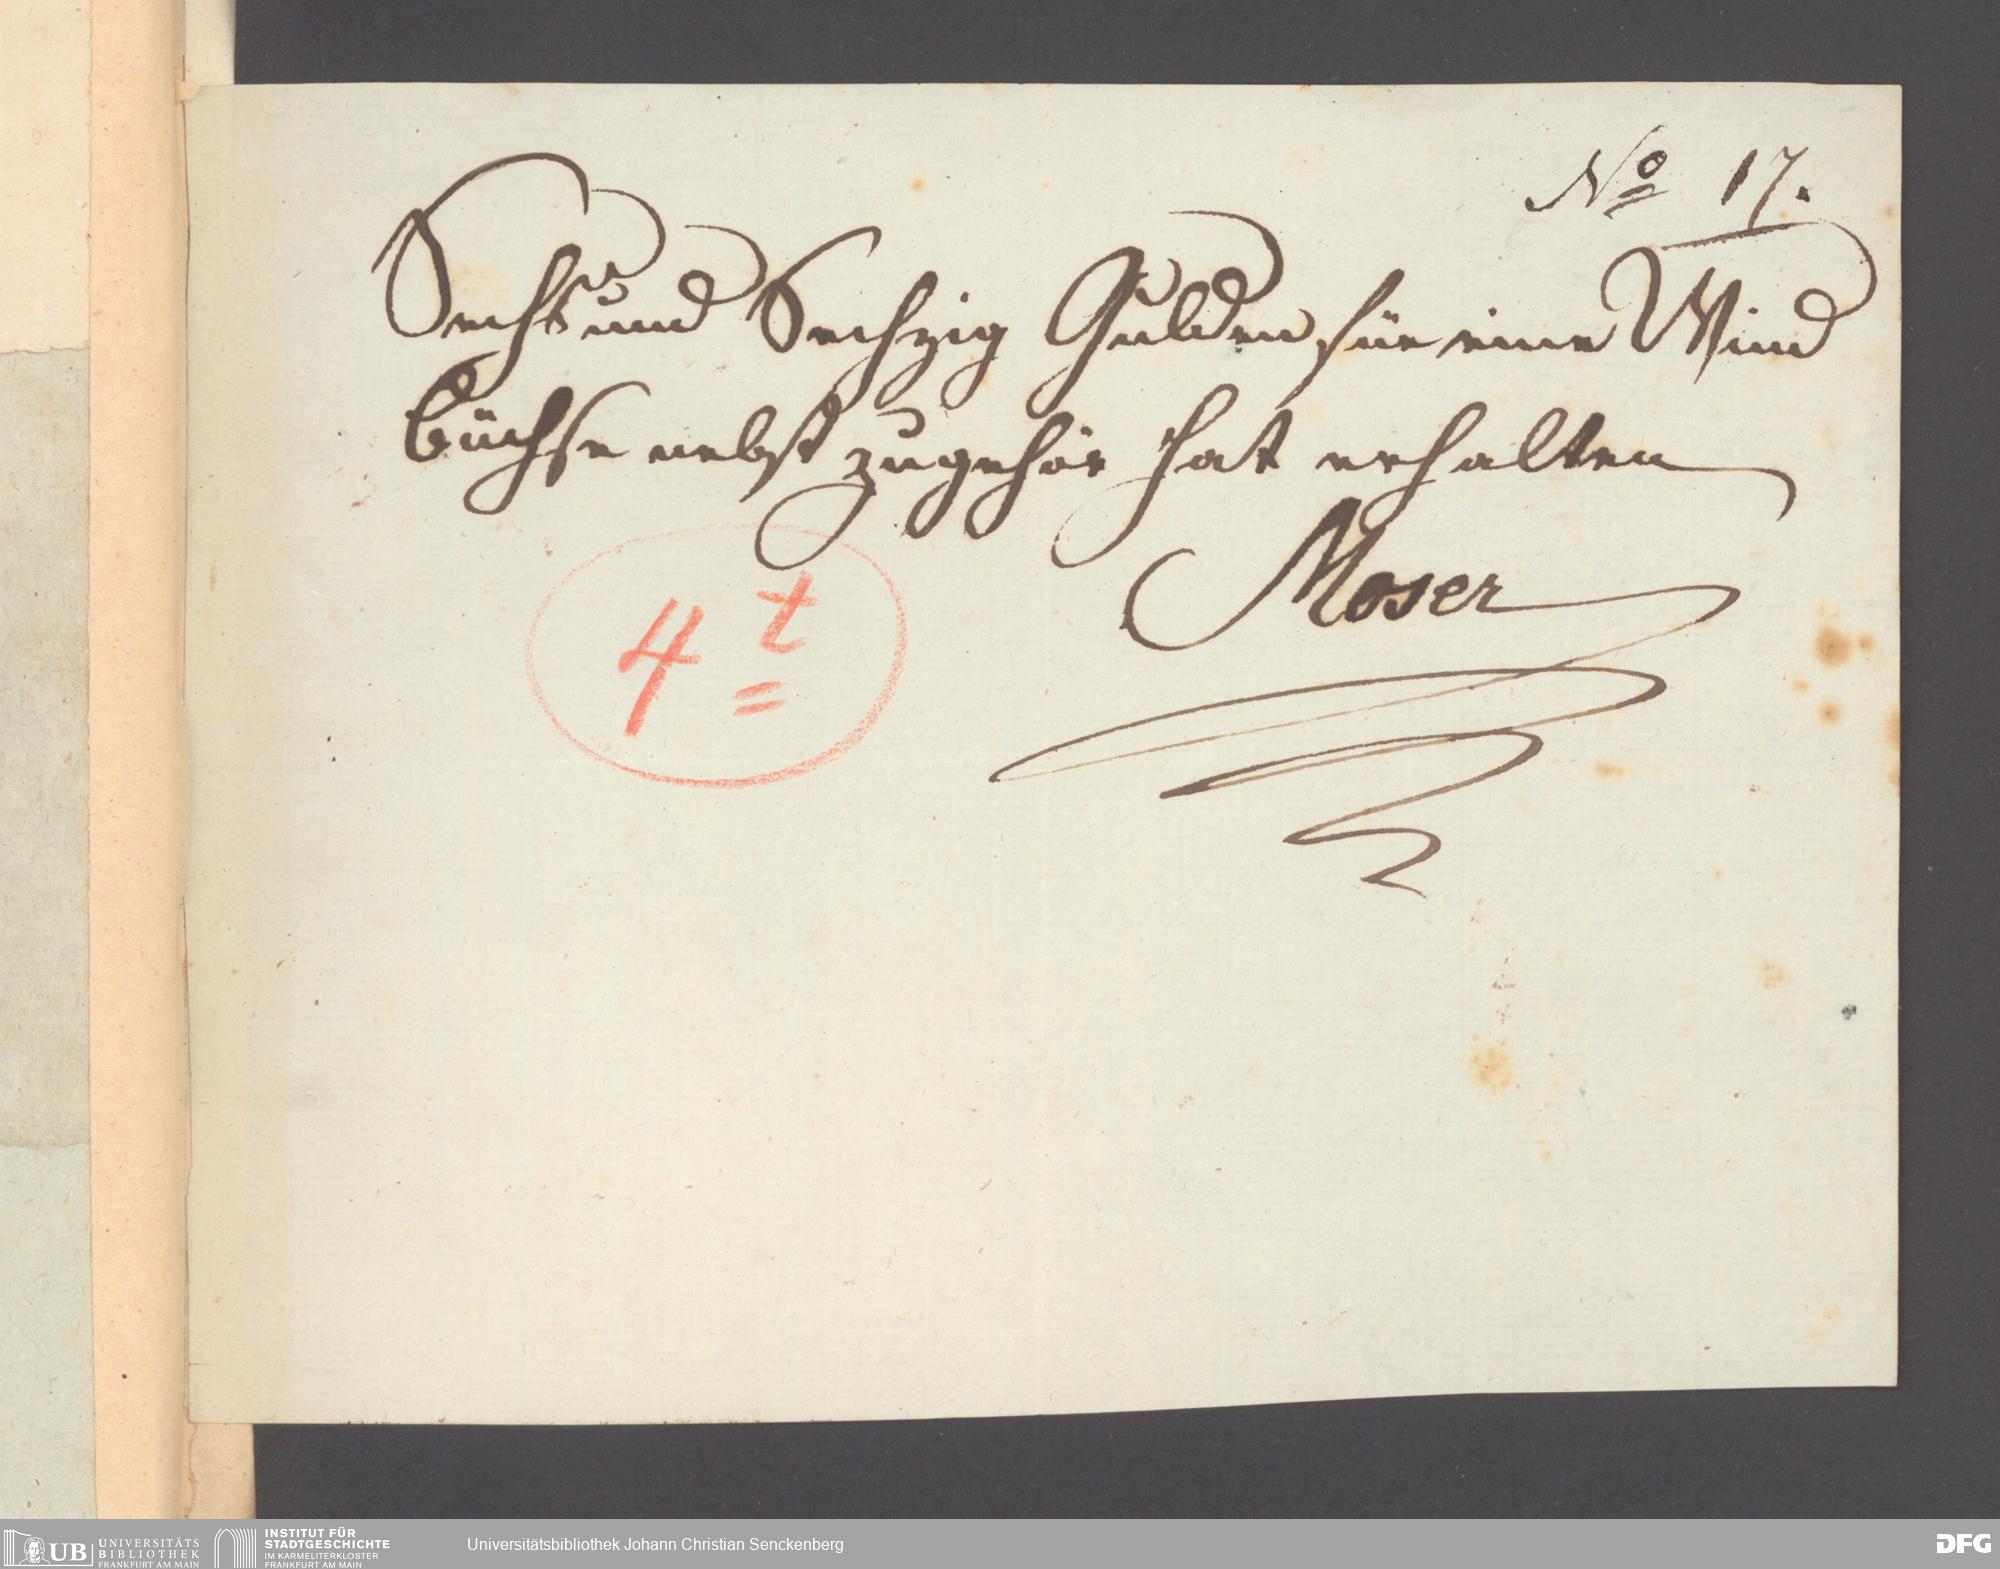 No 17.
Sechs und Sechzig Gulden für eine Wind
büchse nebst zugehör hat erhalten
Moser
4 t
UB UNIVERSITÄTS
BIBLIOTHEK
FRANKFURT AM MAIN
INSTITUT FÜR
STADTGESCHICHTE
IM KARMELITERKLOSTER
FRANKFURT AM MAIN
Universitätsbibliothek Johann Christian Senckenberg
DFG